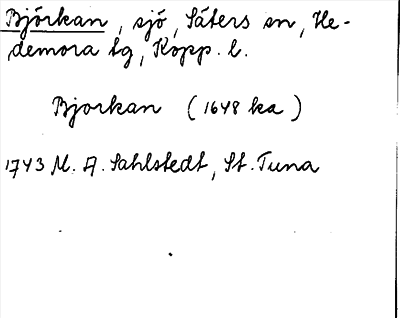 Björkan, sjö, Säters sn, He-
demora tg, Kopp. l.
Bjorkan (1648 ka)
1743 M. A. Sahlstedt, St. Tuna